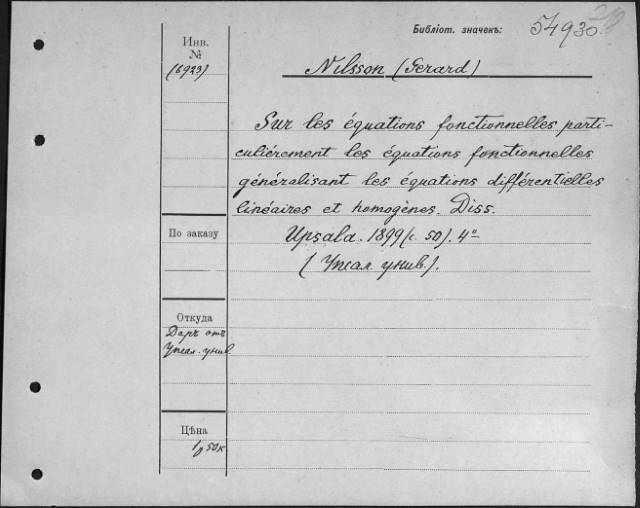 Библіот. значекъ: 54930
Инв.
№
(6923)
Nilsson (Gerard)
Sur les équations fonctionnelles parti-
culiérement les équations fonctionnelles
généralisant les équations différentielles
linéaires et homogènes. Diss.
Upsala. 1899 (с. 50). 4º
(Упсал. унив.).
По заказу
Откуда
Даръ отъ
Упсал. унив.
Цѣна
1р 50к